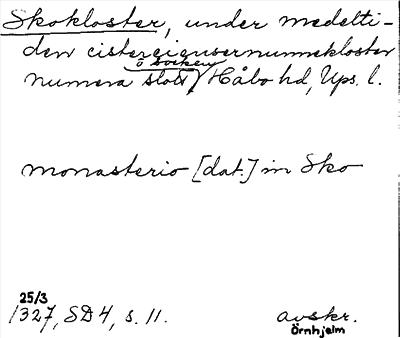 Skokloster, under medelti-
den cisterciensernunnekloster
o socken
numera slott / Håbo hd, Ups. l.
monasterio [dat.] in Sko
25/3
1327, SD 4, s. 11.
avskr.
Örnhjelm